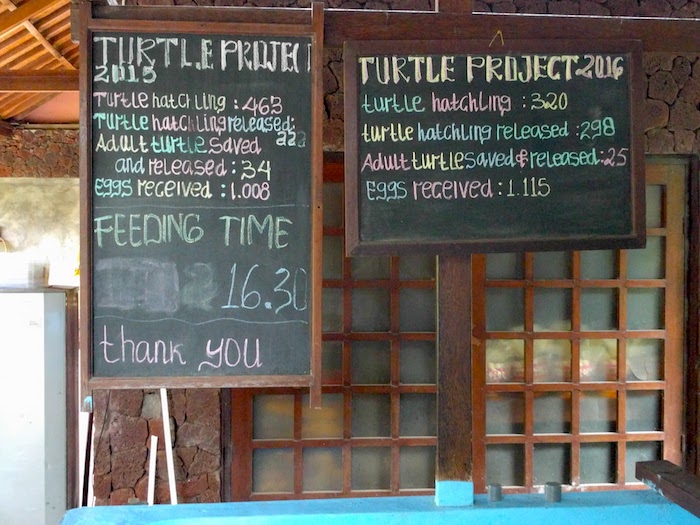 TURTLE PROJEC
2015
Turtle hatchling : 463
Turtle hatchling released:
222
Adult turtle saved
and released : 34
Eggs received : 1.008
FEEDING TIME
16.30
thank you
TURTLE PROJECT 2016
turtle hatchling : 320
turtle hatchling released : 298
Adult turtle saved & released : 25
Eggs received : 1.115